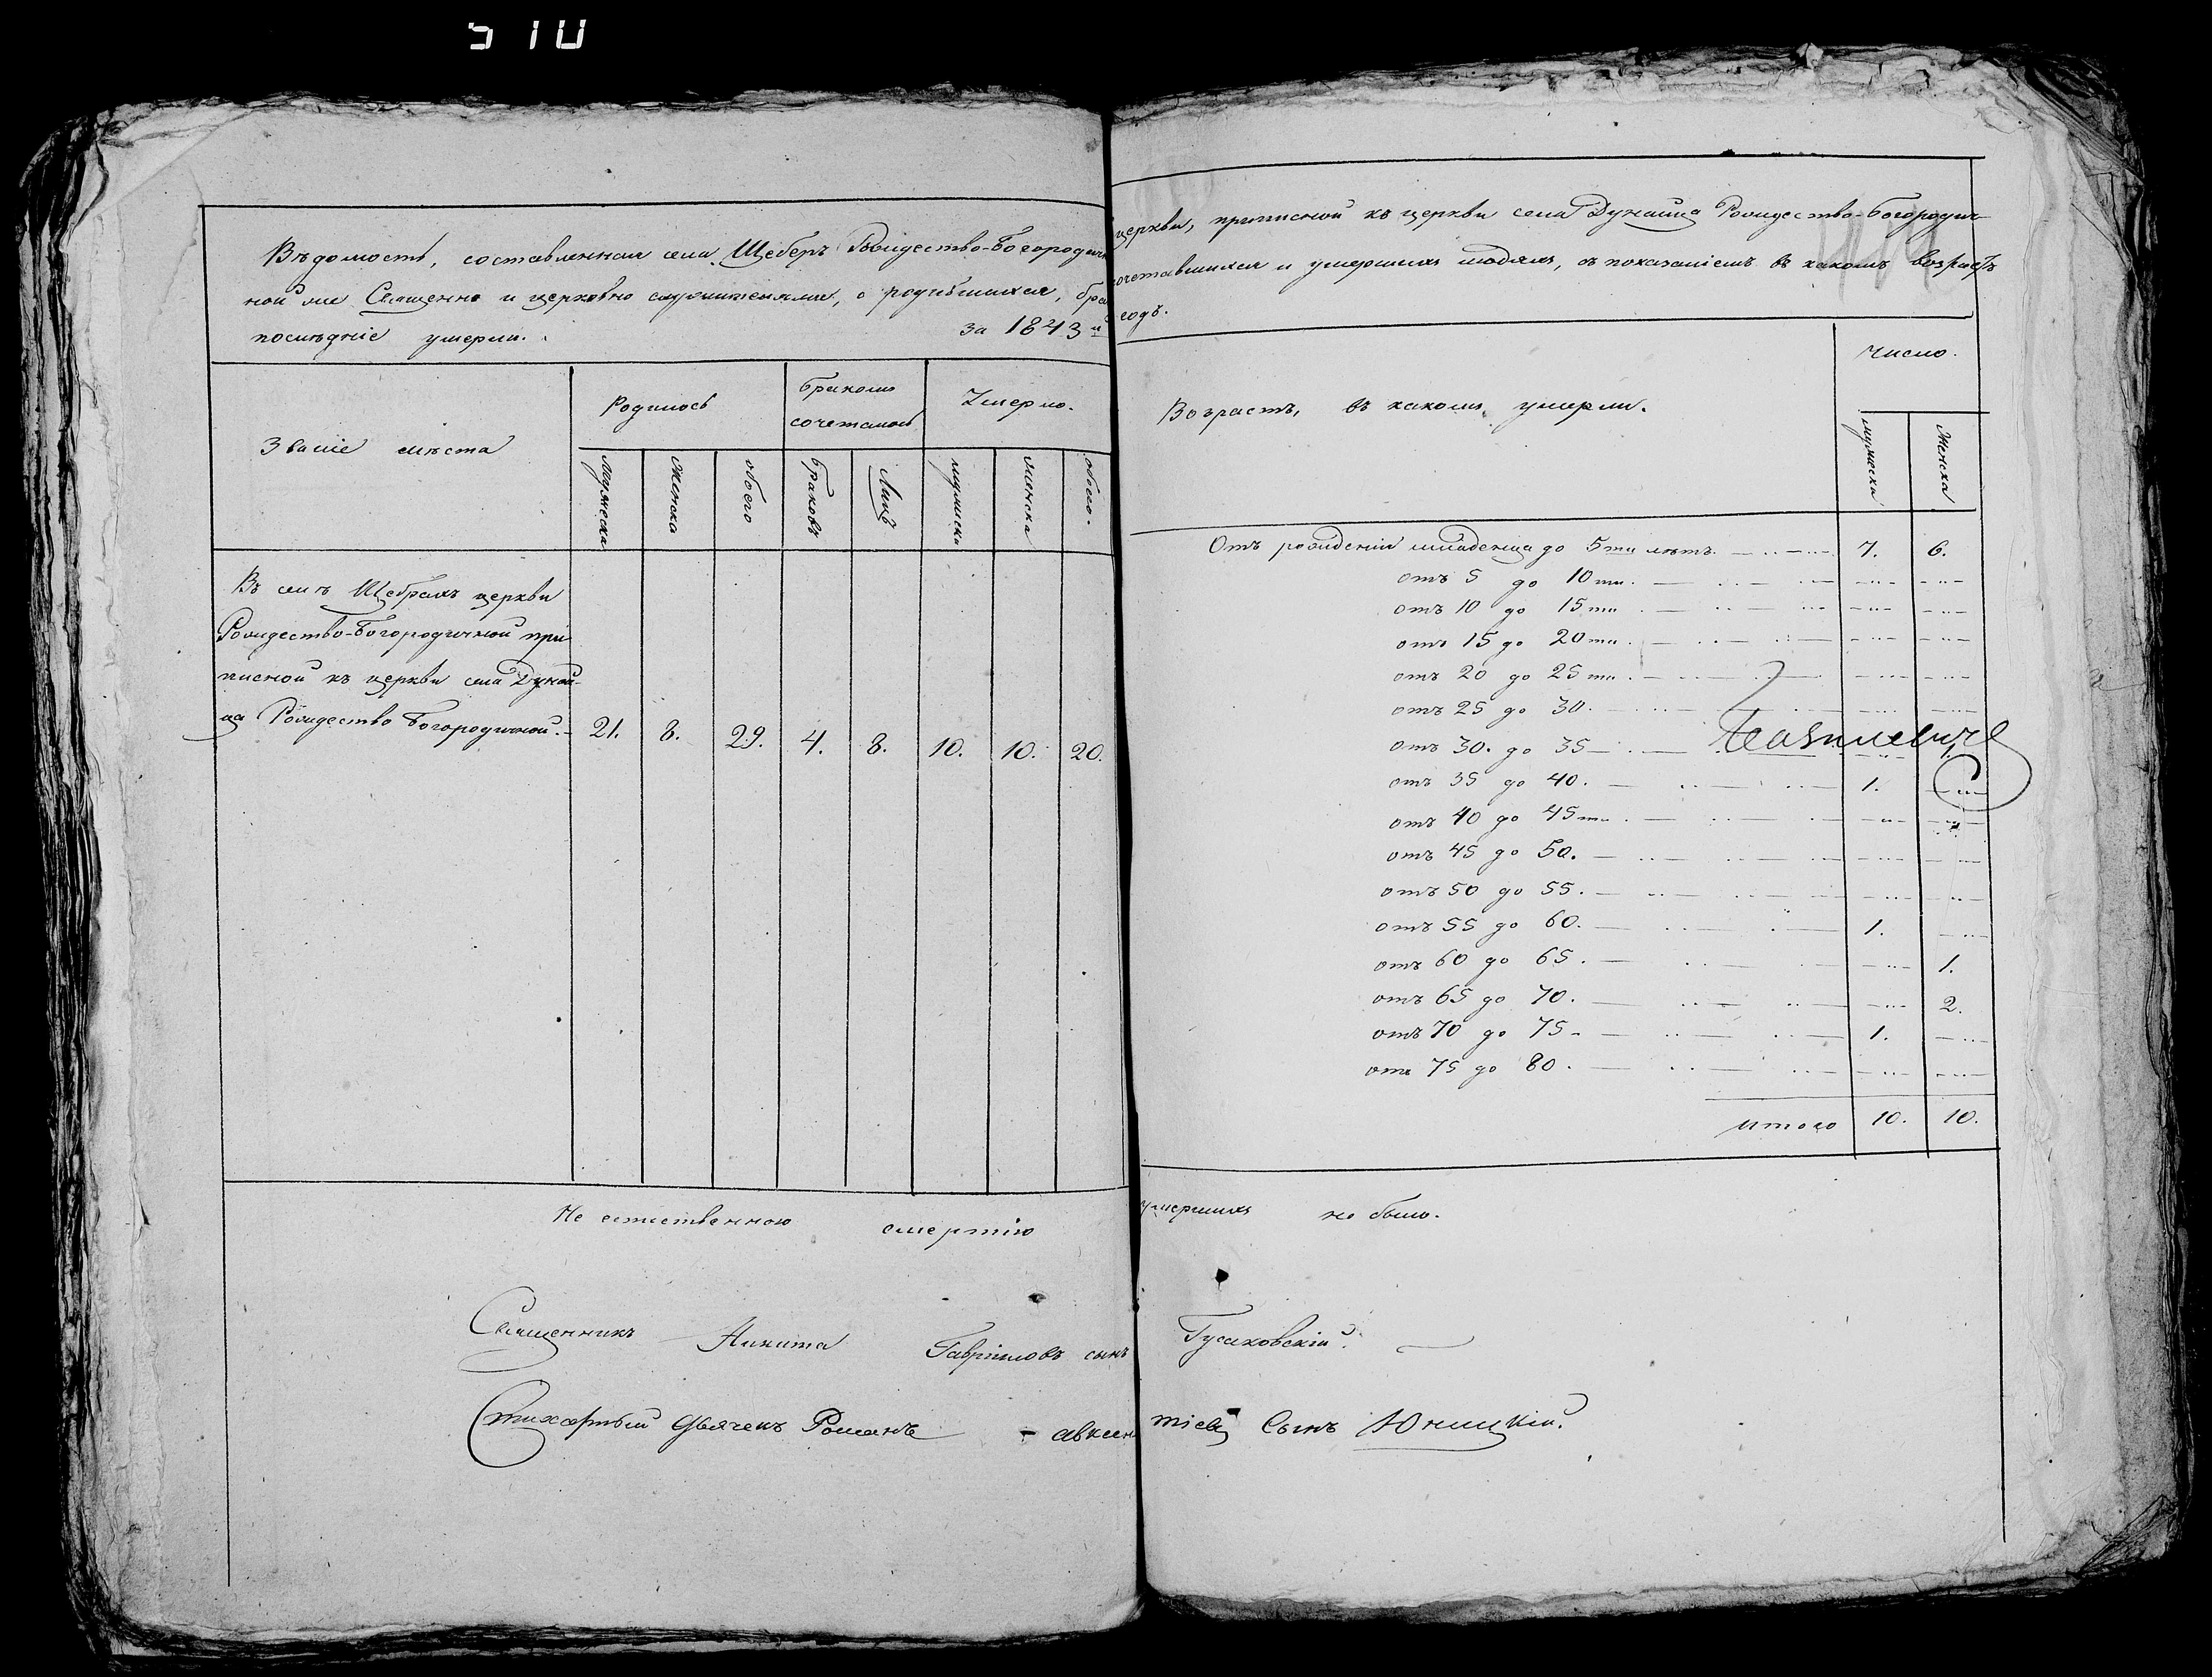 510
Вѣдомость, составленная села Щебръ Рождество-Богородич церкви, приписной къ церкви села Дунайца Рождество-Богородич
ной же Священно и церковно служителями, о родившихся, бра сочетавшихся и умершихъ людяхъ, съ показаніемъ въ какомъ возрастѣ
послѣдніе умерли. за 1843 й годъ.
Званіе мѣста
Родилось
Бракомъ сочеталось
Умерло.
мужеска
женска
обоего
браковъ
Лицъ
мужеска
женска
обоего.
Въ селѣ Щебрахъ церкви
Рождество-Богородичной при
писной къ церкви села Дунай-
ца Рождество Богородичной. 21. 8. 29. 4. 8. 10. 10. 20.
Возрастъ, въ какомъ умерли.
Число.
мужеска
Женска
Отъ рожденія младенца до 5ти лѣтъ. 7. 6.
отъ 5 до 10ти.
отъ 10 до 15ти
отъ 15 до 20ти.
отъ 20 до 25ти.
отъ 25 до 30.
отъ 30. до 35 1.
отъ 35 до 40. 1.
отъ 40 до 45ти.
отъ 45 до 50.
отъ 50 до 55.
отъ 55 до 60. 1.
отъ 60 до 65. 1.
отъ 65 до 70. 2.
отъ 70 до 75 1.
отъ 75 до 80.
Итого 10. 10.
Не естественною смертію умершихъ не было.
Священникъ Никита Гавріиловъ сынъ Гусаковскій.
Стихарный дьячекъ Романъ авксентіевъ Сынъ Юницкій.